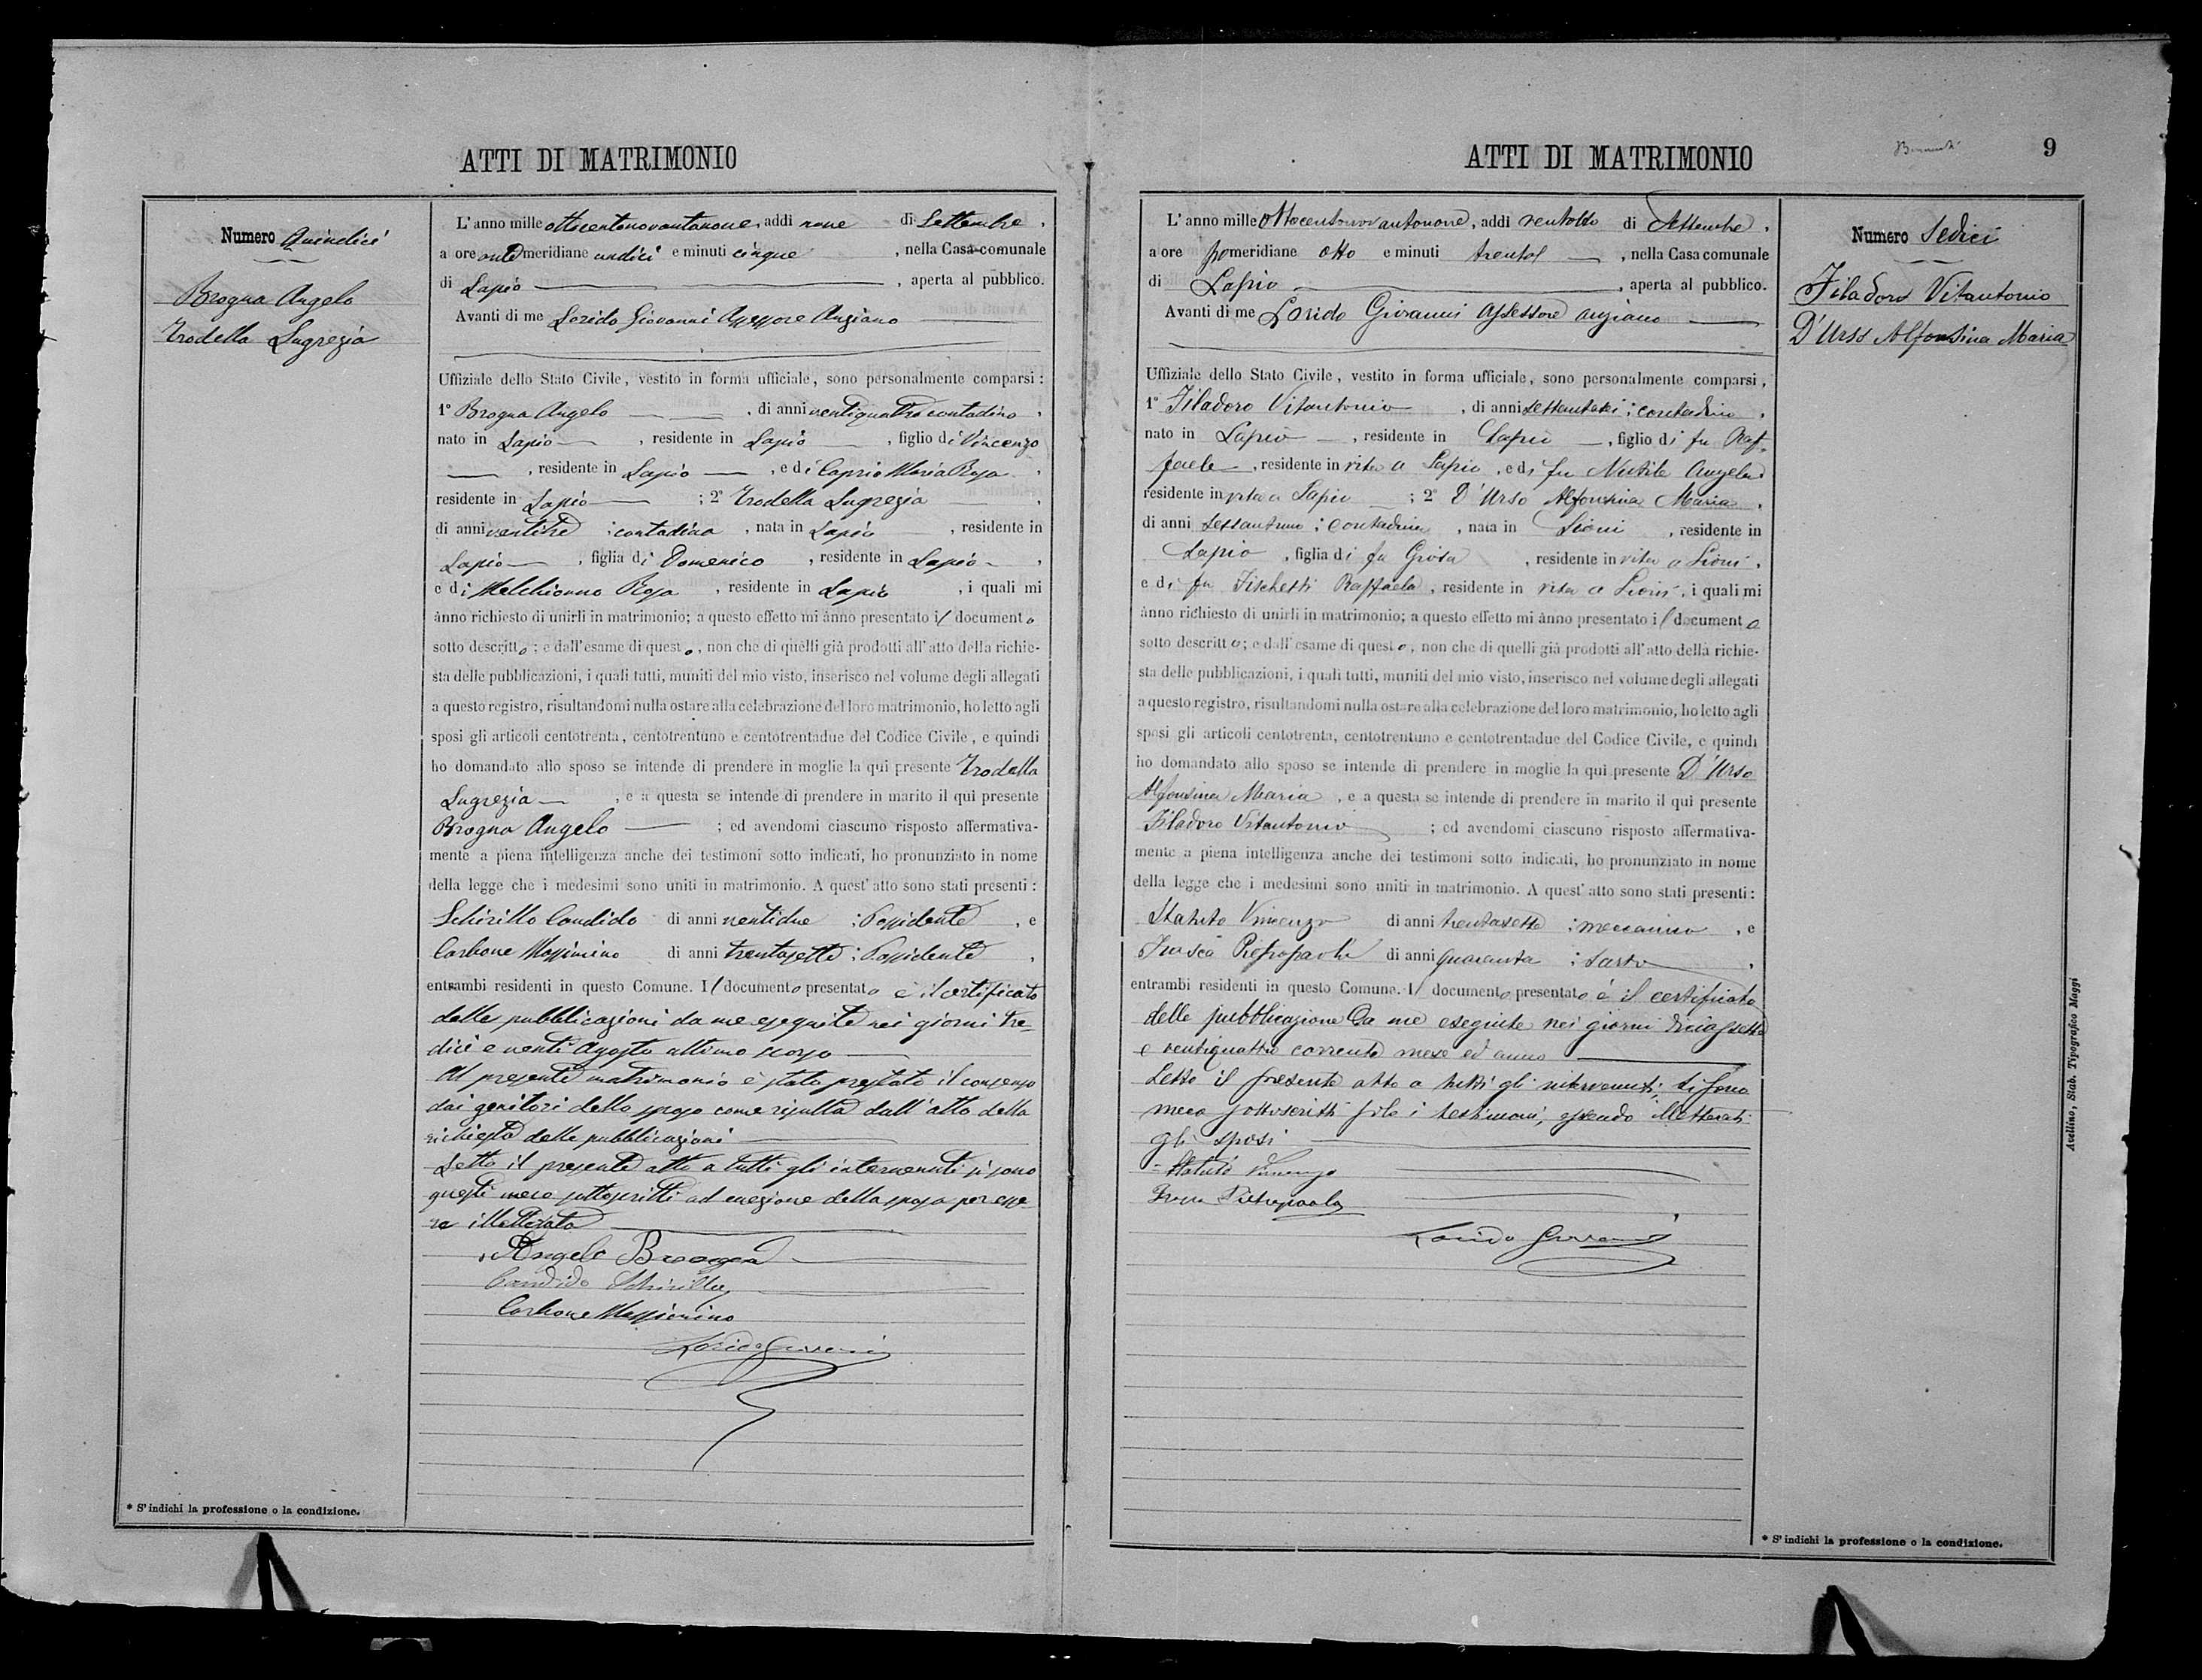 ATTI DI MATRIMONIO
Numero Quindici
Brogna Angelo
Trodella Lugrezia
L'anno mille ottocentonovantanove, addì nove di Settembre,
a ore anti meridiane undici e minuti cinque, nella Casa comunale
di Lapio, aperta al pubblico.
Avanti di me Lorido Giovanni Assessore Anziano
Uffiziale dello Stato Civile, vestito in forma ufficiale, sono personalmente comparsi:
1° Brogna Angelo, di anni ventiquattro contadino,
nato in Lapio, residente in Lapio, figlio di Vincenzo
, residente in Lapio, e di Caprio Maria Rosa,
residente in Lapio; 2° Trodella Lugrezia,
di anni ventitre; contadina, nata in Lapio, residente in
Lapio, figlia di Domenico, residente in Lapio,
e di Melchionno Rosa, residente in Lapio, i quali mi
ànno richiesto di unirli in matrimonio; a questo effetto mi ànno presentato il documento
sotto descritto; e dall'esame di questo, non che di quelli già prodotti all'atto della richie-
sta delle pubblicazioni, i quali tutti, muniti del mio visto, inserisco nel volume degli allegati
a questo registro, risultandomi nulla ostare alla celebrazione del loro matrimonio, ho letto agli
sposi gli articoli centotrenta, centotrentuno e centotrentadue del Codice Civile, e quindi
ho domandato allo sposo se intende di prendere in moglie la qui presente Trodella
Lugrezia, e a questa se intende di prendere in marito il qui presente
Brogna Angelo; ed avendomi ciascuno risposto affermativa-
mente a piena intelligenza anche dei testimoni sotto indicati, ho pronunziato in nome
della legge che i medesimi sono uniti in matrimonio. A quest'atto sono stati presenti:
Schirillo Candido di anni ventidue; Possidente, e
Carbone Massimino di anni trentasette; Possidente,
entrambi residenti in questo Comune. Il documento presentato è il certificato
delle pubblicazioni da me eseguite nei giorni tre-
dici e venti Agosto ultimo scorso
Al presente matrimonio è stato prestato il consenso
dai genitori dello sposo come risulta dall'atto della
richiesta delle pubblicazioni
Letto il presente atto a tutti gli intervenuti si sono
questi meco sottoscritti ad eccezione della sposa per esse-
re illetterata
Angelo Brogna
Candido Schirillo
Carbone Massimino
Lorido Giovanni
* S'indichi la professione o la condizione.
ATTI DI MATRIMONIO
9
Numero Sedici
Filadoro Vitantonio
D'Urso Alfonsina Maria
L'anno mille ottocentonovantanove, addì ventotto di Settembre,
a ore pomeridiane otto e minuti trenta, nella Casa comunale
di Lapio, aperta al pubblico.
Avanti di me Lorido Giovanni Assessore anziano
Uffiziale dello Stato Civile, vestito in forma ufficiale, sono personalmente comparsi,
1° Filadoro Vitantonio, di anni; contadino,
nato in Lapio, residente in Lapio, figlio di fu Raf-
faele, residente in vita a Lapio, e di fu Angela
residente in vita a Lapio; 2° D'Urso Alfonsina Maria,
di anni sessantuno; contadina, nata in Lioni, residente in
Lapio, figlia di fu, residente in vita a Lioni,
e di fu Fischetti Raffaela, residente in vita a Lioni, i quali mi
ànno richiesto di unirli in matrimonio; a questo effetto mi ànno presentato il documento
sotto descritto; e dall'esame di questo, non che di quelli già prodotti all'atto della richie-
sta delle pubblicazioni, i quali tutti, muniti del mio visto, inserisco nel volume degli allegati
a questo registro, risultandomi nulla ostare alla celebrazione del loro matrimonio, ho letto agli
sposi gli articoli centotrenta, centotrentuno e centotrentadue del Codice Civile, e quindi
ho domandato allo sposo se intende di prendere in moglie la qui presente D'Urso
Alfonsina Maria, e a questa se intende di prendere in marito il qui presente
Filadoro Vitantonio; ed avendomi ciascuno risposto affermativa-
mente a piena intelligenza anche dei testimoni sotto indicati, ho pronunziato in nome
della legge che i medesimi sono uniti in matrimonio. A quest'atto sono stati presenti:
Statuto Vincenzo di anni trentasette; meccanico, e
Frasca Pietropaolo di anni quaranta; sarto,
entrambi residenti in questo Comune. Il documento presentato è il certificato
delle pubblicazione da me eseguite nei giorni diciassette
e ventiquattro corrente mese ed anno
Letto il presente atto a tutti gli intervenuti, si sono
meco sottoscritti solo i testimoni, essendo illetterati
gli sposi
Statuto Vincenzo
Frasca Pietropaolo
Lorido Giovanni
* S'indichi la professione o la condizione.
Avellino, Stab. Tipografico Maggi